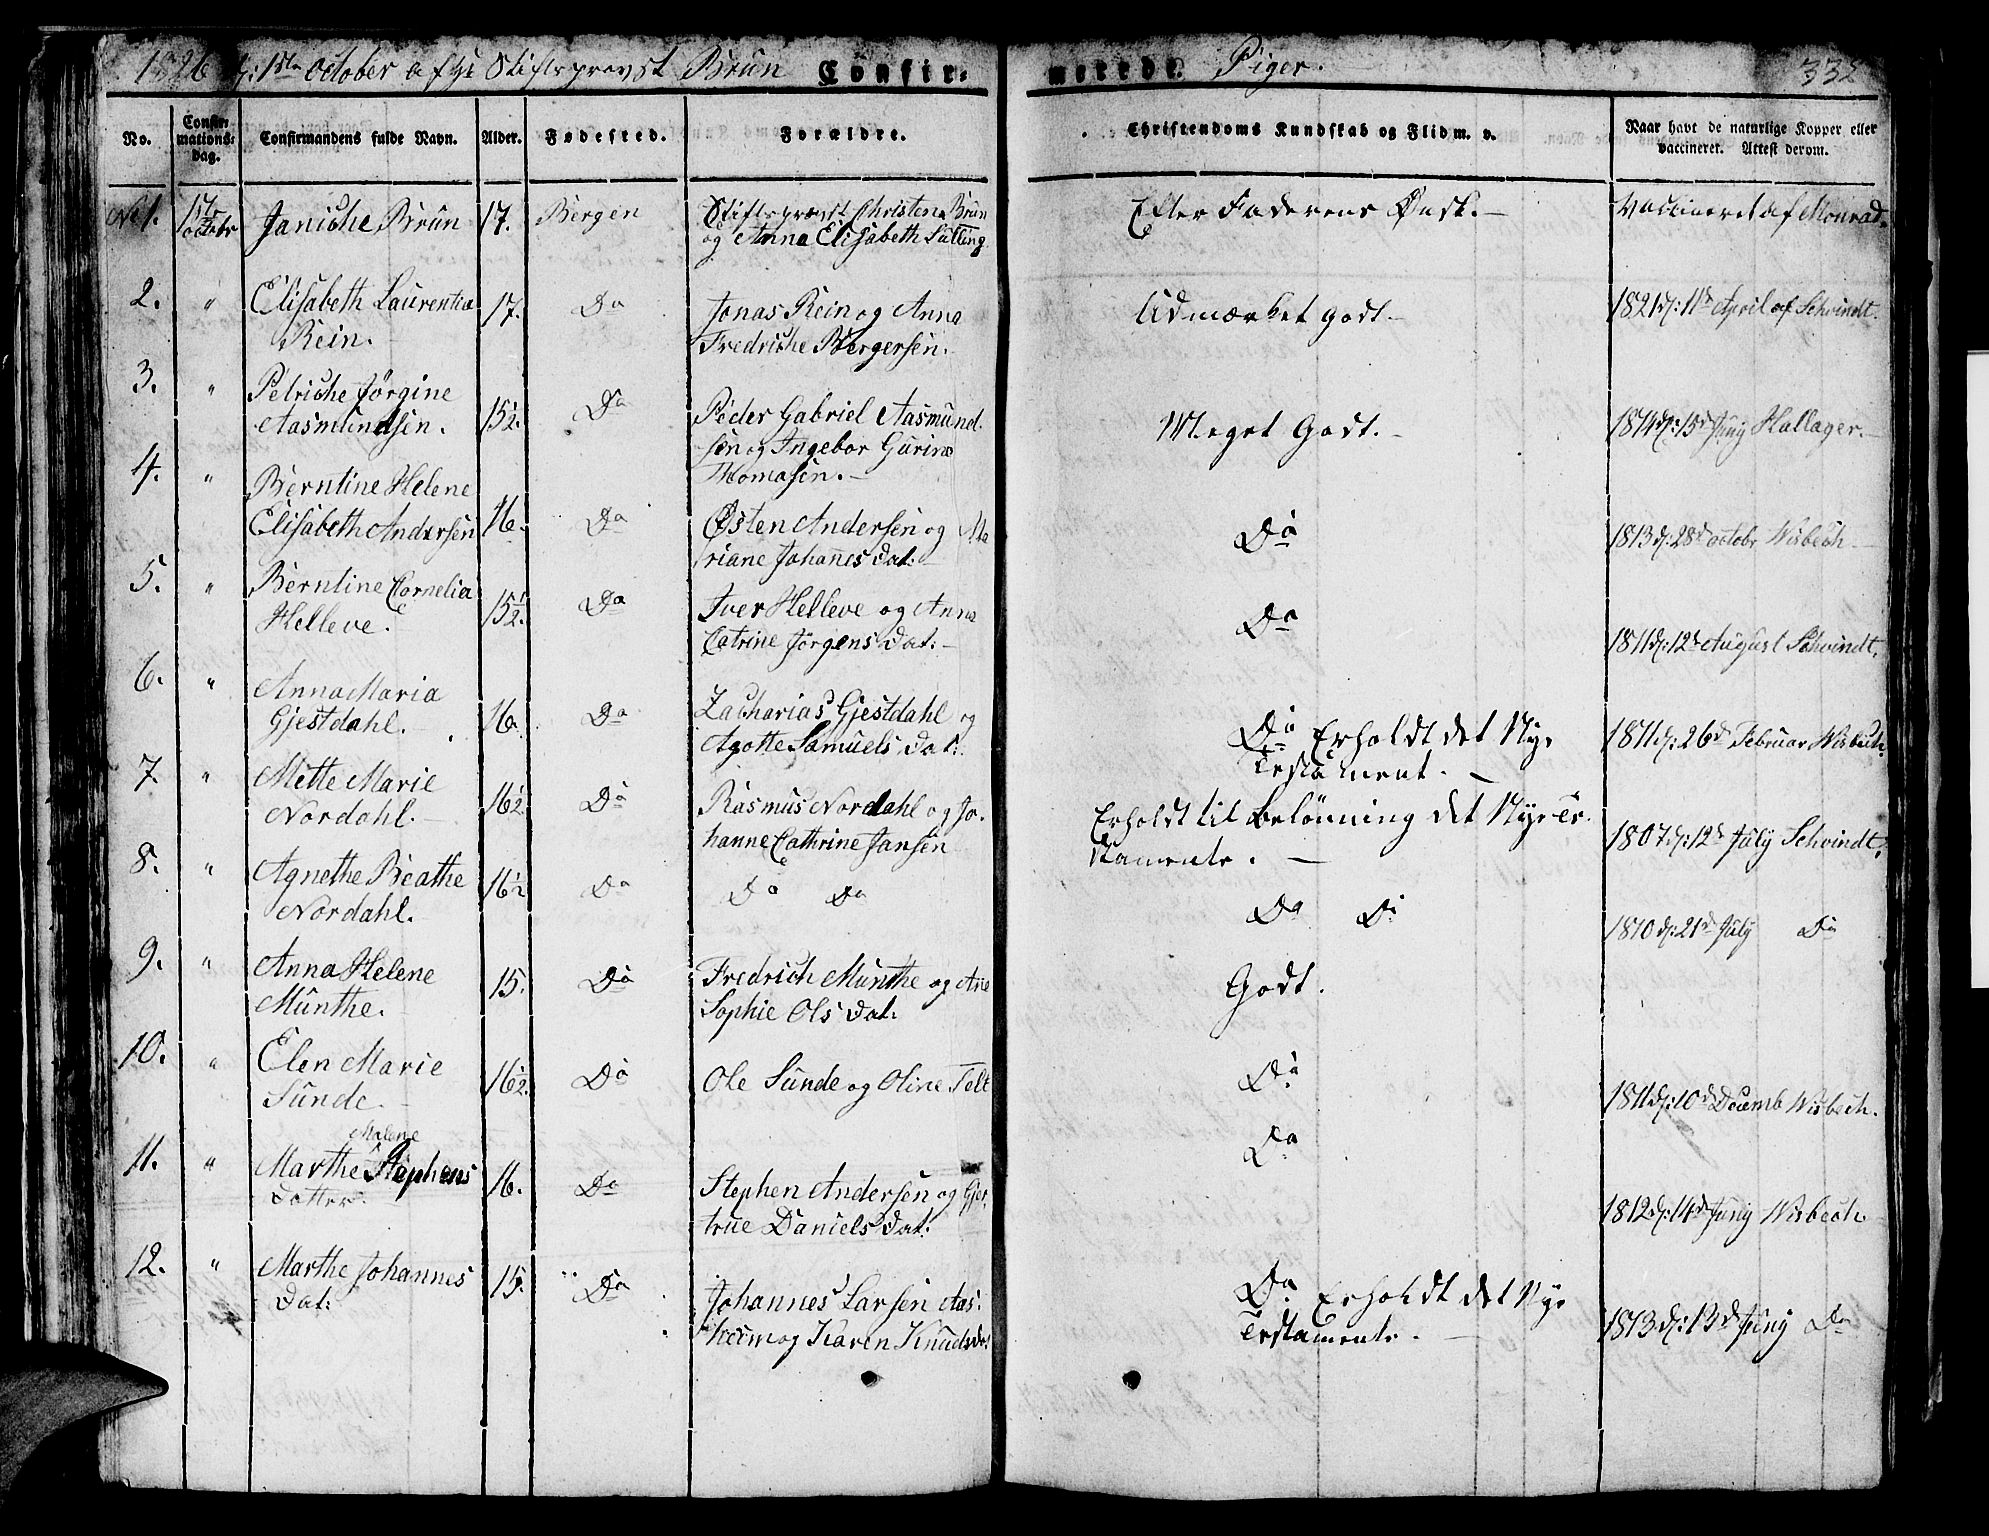 1826 d: 1ste October af Hr Stiftsprovst Brun Confir=
merede Piger. 332
No. Confir-mations-dag. Confirmandens fulde Navn. Alder. Fødested. Forældre. Christendoms Kundskab og Flid m. v. Naar havt de naturlige Kopper eller vaccineret. Attest derom.
No 1. October Janiche Brun 17. Bergen Stiftsprovst Christen Brun Efter Faderens Ønsk. Vaccineret af Monrad.
og Anna Elisabeth Salling
2. " Elisabeth Laurentia 17. Do Jonas Rein og Anna Udmærket godt. 1821 d: 11te April af Schvindt.
Rein. Fredriche Børgersen.
3. " Petriche Jørgine 15½. Do Peder Gabriel Aasmund Meget Godt. 1814 d: 15d Juny Hallager.
Aasmundsen. sen og Ingebor Gurine
Thomasen.
4. " Berntine Helene 16. Do Østen Andersen og Ma Do 1813 d: 28d octobr Wisbech
Elisabeth Andersen riane Johannes Dat:
5. " Berntine Cornelia 15½. Do Iver Helleve og Anna Do 1811 d: 12te August Schvindt.
Helleve. Catrine Jørgens Dat:
6. " Anna Maria 16. Do Zacharias Gjestdahl og Do Erholdt det Nye 1811 d: 26d Februar Wisbech.
Gjestdahl. Agotte Samuels Dat: Testament.
7. " Mette Marie 16½. Do Rasmus Nordahl og Jo- Erholdt til Belønning det Nye Te- 1807 d: 12te July Schvindt.
Nordahl. hanne Cathrine Jansen stamente.
8. " Agnethe Beathe 16½ Do Do Do Do Do 1810 d: 21d July Do
Nordahl.
9. " Anna Helene 15. Do Fredrich Munthe og Ane Godt.
Munthe. Sophie Ols Dat:
10. " Elen Marie 16½. Do Ole Sunde og Oline Felt Do 1811 d: 10d Decemb Wisbech.
Sunde.
Malene
11. " Marthe Stephens 16. Do Stephen Andersen og Gjer Do 1812 d: 14d Juny Wisbech
Datter. true Daniels Dat:
12. " Marthe Johannes 15. Do Johannes Larsen Aas- Do Erholdt det Nye 1813 d: 13d Juny Do
Dat: heim og Karen Knudsdat Testamente.